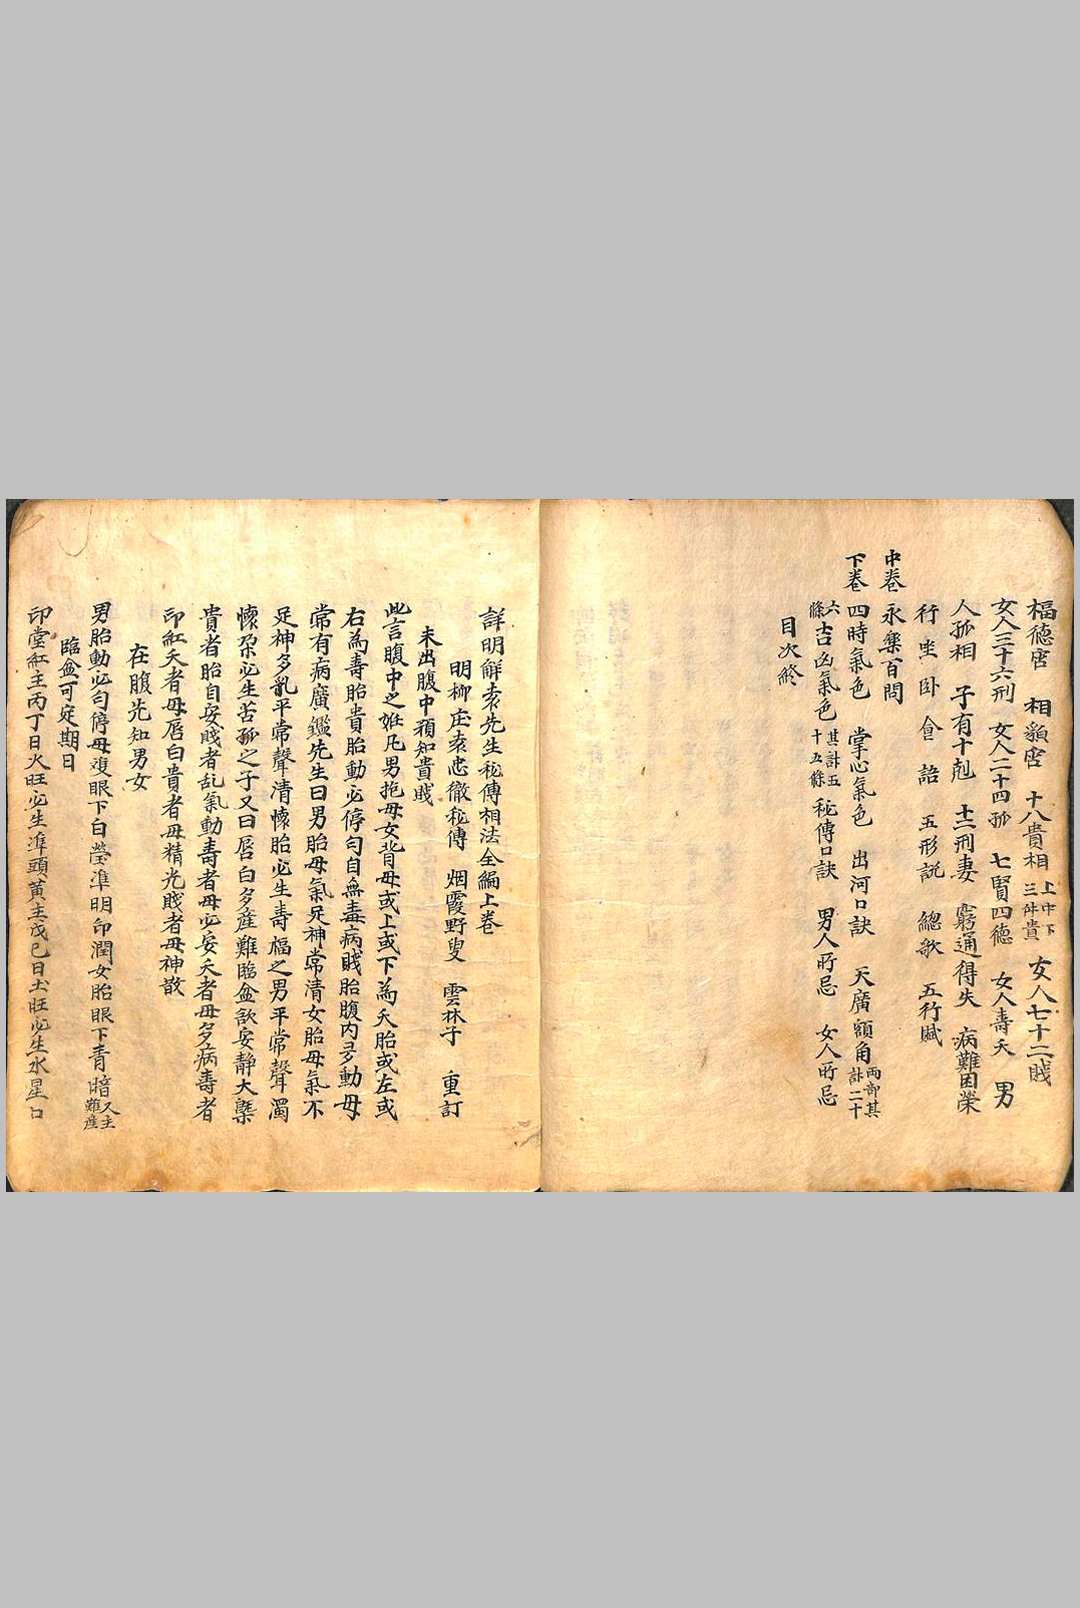 福德宮 相貌宮 十八貴相 上中下三件貴 女人七十二賤
女人三十六刑 女人二十四孤 七賢四德 女人壽夭 男
人孤相 子有十剋 十二刑妻 窮通得失 病難困榮
行 坐 卧 食 詒 五形說 總歌 五行賦
中卷 永樂百問
下卷 四時氣色 掌心氣色 出河口訣 天廣額角 兩部其計二十
六條 吉凶氣色 其計五十五條 秘傳口訣 男人所忌 女人所忌
目次終
詳明觧袁先生秘傳相法全編上卷
明柳庄袁忠徹秘傳 烟霞野叟 雲林子 重訂
未出腹中預知貴賤
此言腹中之姙凡男抱母女背母或上或下為夭胎或左或
右為壽胎貴胎動必停勻自無毒病賤胎腹内多動母
常有病廣鑑先生曰男胎母氣足神常清女胎母氣不
足神多乱平常聲清懷胎必生壽福之男平常聲濁
懷孕必生苦孤之子又曰唇白多産難臨盆欲安静大槩
貴者胎自安賤者乱氣動壽者母必妥夭者母多病壽者
印紅夭者母唇白貴者母精光賤者母神散
在腹先知男女
男胎動必勻停母雙眼下白瑩準明印潤女胎眼下青暗 又主難産
臨盆可定期日
印堂紅主丙丁日火旺必生準頭黃主戊己日土旺必生水星口